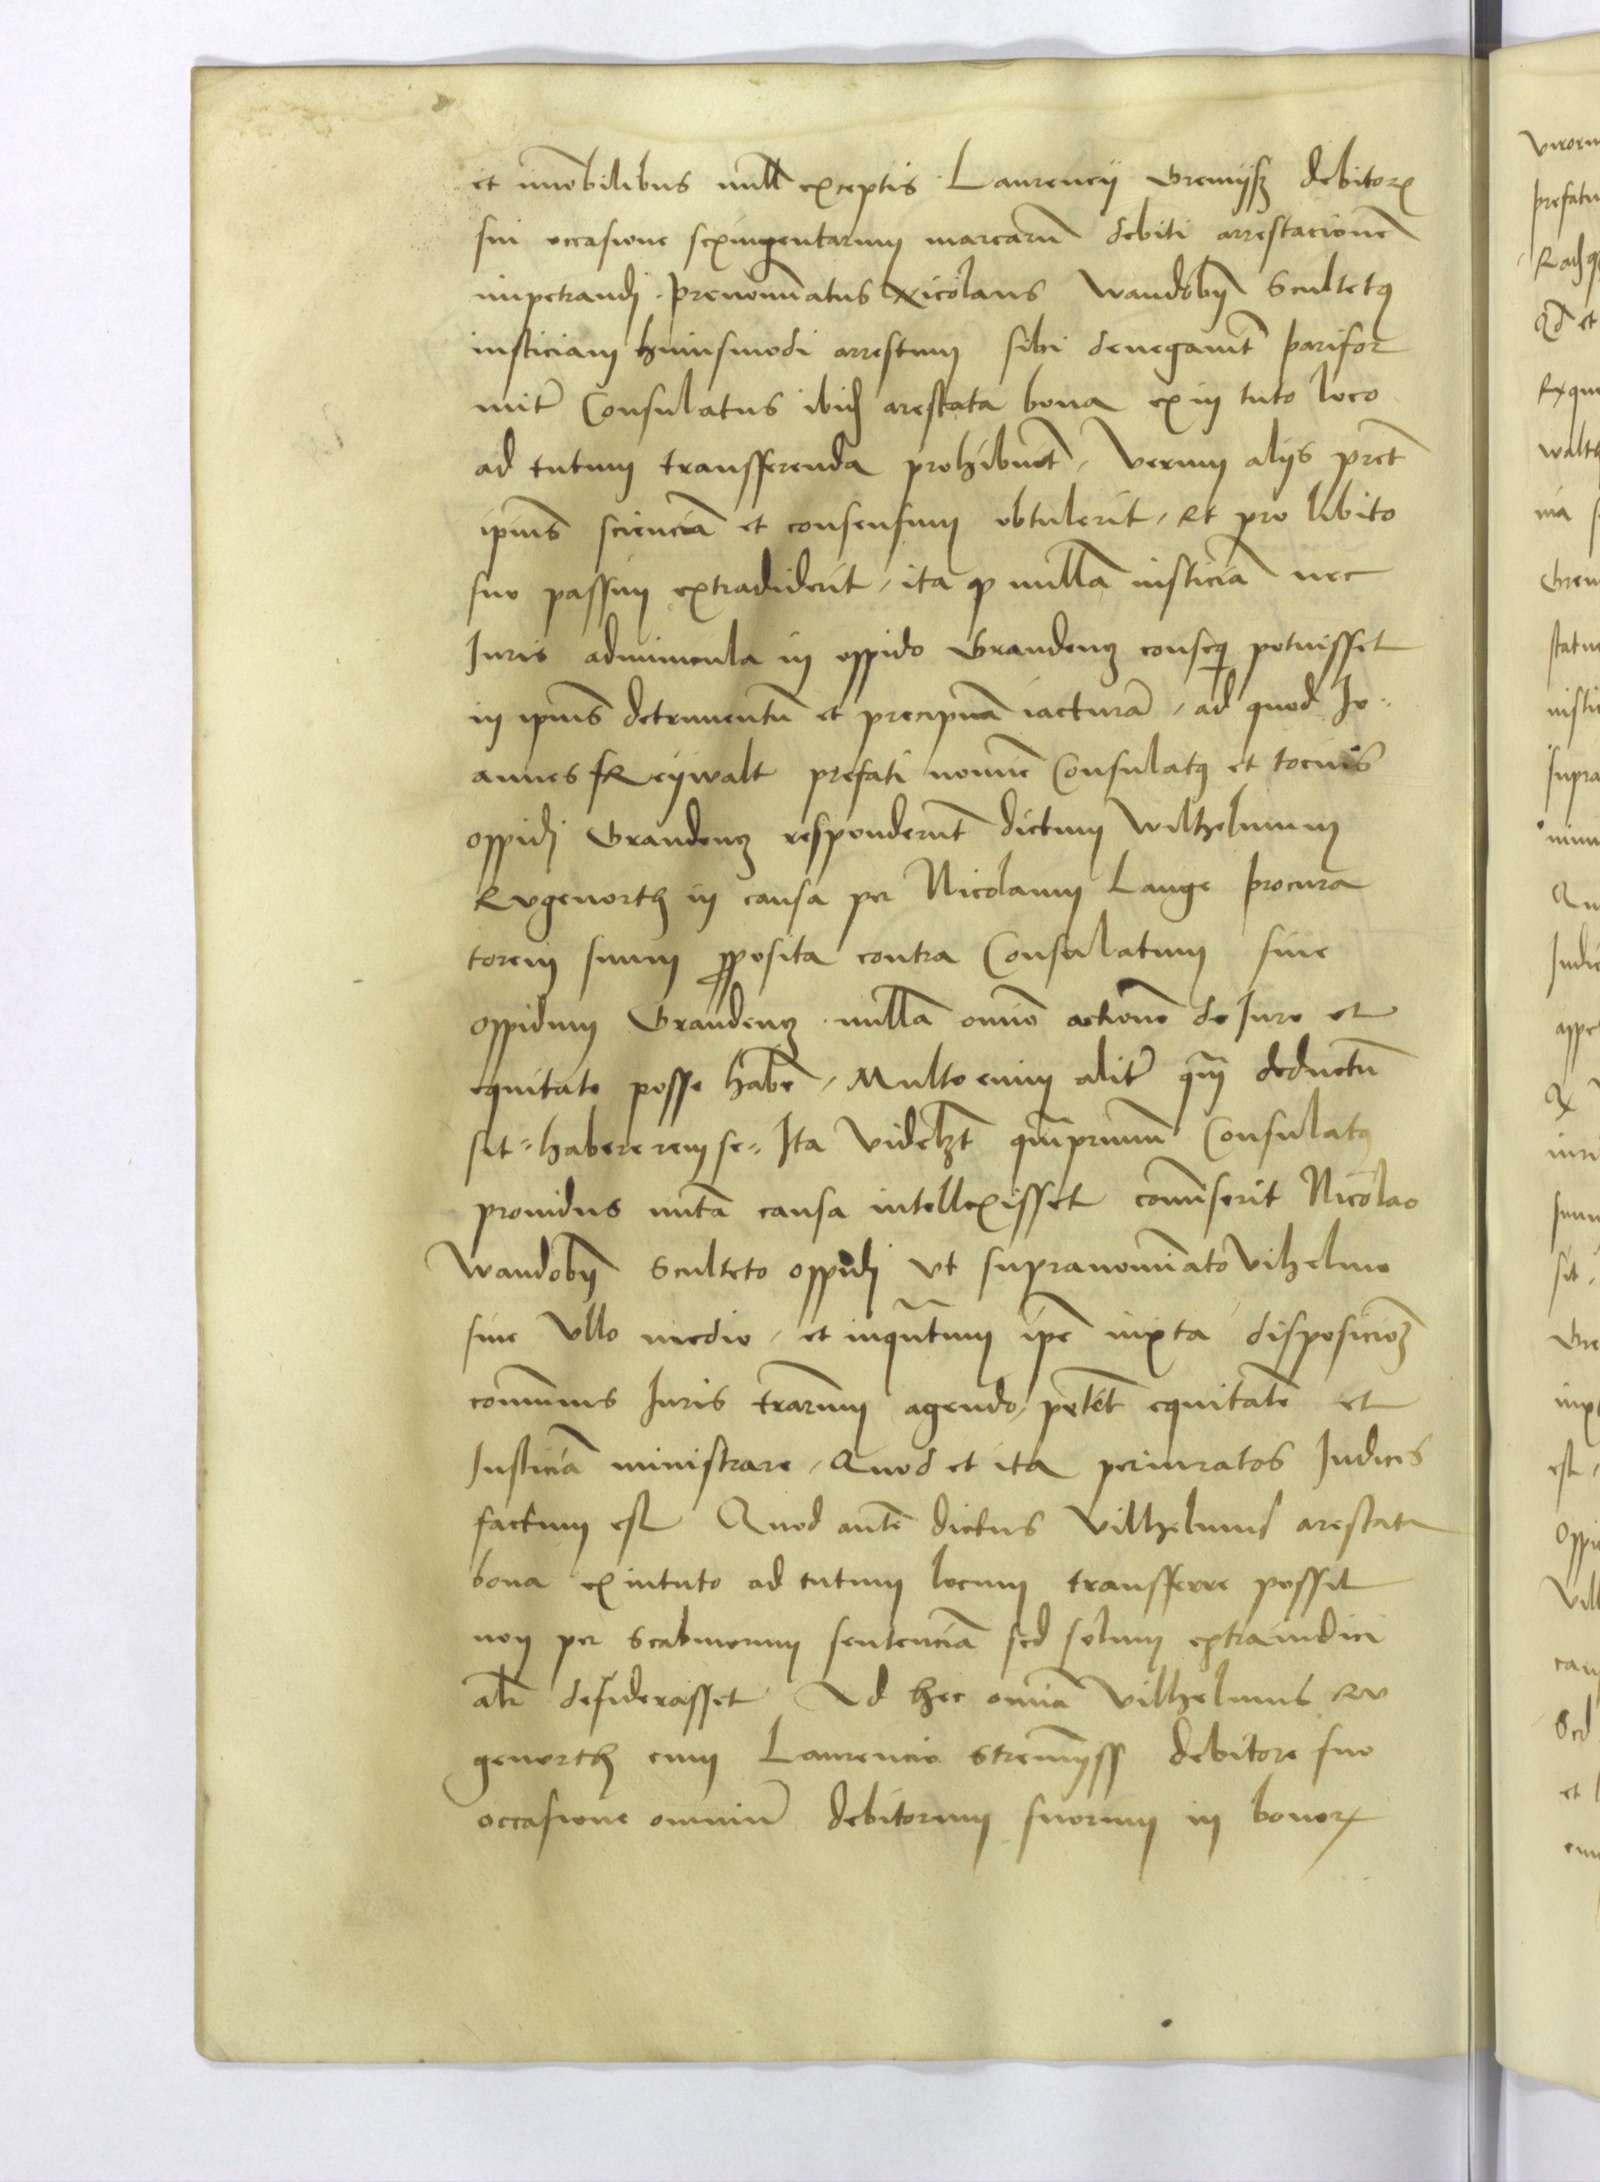 et im̄obilibus null exceptis Laurencii Gremiisz debitorꝫ
sui occasione sexingentarum marcarū debiti arrestacionē
impetrandj prenoīatus Nicolaus Wandobyn̄ Scultetꝰ
iusticiam huiusmodi arrestum sibi denegauit̄ parifor
mit̄ Consulatus ibidē arestata bona ex in tuto loco
ad tutum transferenda prohibuīt, Verum aliis pret̄
ipius̄ scienciā et consensum obtulerit, Et pro libito
suo passim extradiderit, ita ꝙ nullā iusticiā nec
Iuris adminicula in oppido Graudencz conseqi potuisset
in ipius̄ detrimentū et precipuā iacturā, ad quod Jo
annes Reywalt prefati nomīe Consulatꝰ et tocius
oppidj Graudencz responderūt dictum Wilhelmum
Rugenorth in causa per Nicolaum Lange procura
torem suum ꝓposita contra Consulatum siue
oppidum Graudencz nullā omnō actionē de Iure et
equitate posse habē, Multo enim alit̄ qm̄ deductū
sit habere rem se Ita Videlꝫt qm̄primum Consulatꝰ
prouidus nutā causa intellexisset comīserit Nicolao
Wandobyn̄ Sculteto oppidj Vt supranomīato Vihelmo
sine Vllo medio, et inqn̄tum ipē iuxta disposiciōꝫ
communis Iuris trarum agendo, petet̄ equitatē et
Iusticiā ministrare, Quod et ita per iuratos Iudicis
factum est Quod autē dictus Vilhelmus arestata
bona ex intuto ad tutum locum transferre possit
non per Scabinorum sentenciā sed solum extraiudici
alr̄ desiderasset Ad hec omīa Vilhelmus Ru
genorth cum Laurencio Stremyss debitore suo
occasione omniū debitorum suorum in bonorꝫ